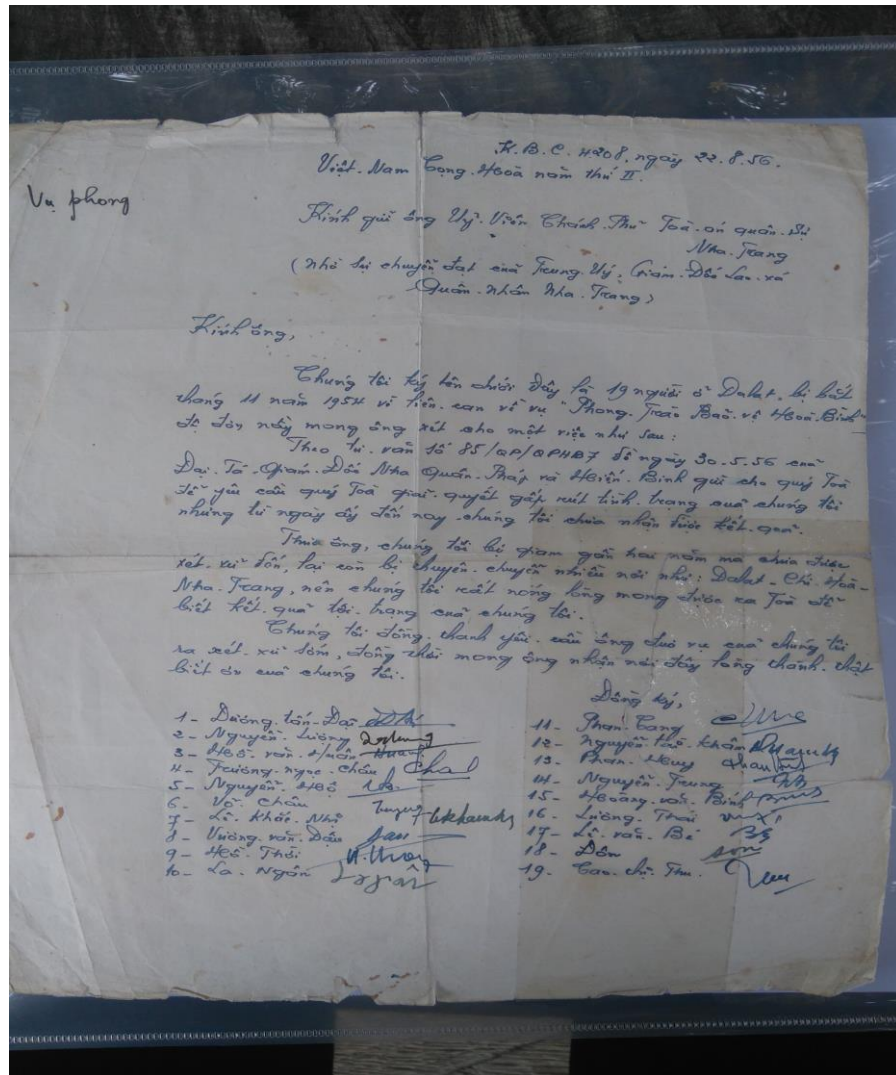 K.B.C. 4208, ngày 22.8.56.
Việt. Nam Cộng. Hoà năm thứ II.
Vụ phong
Kính gửi ông Uỷ. Viên Chánh. Thư Toà. án quân. sự
Nha. Trang
(nhờ sự chuyển đạt của Trung. Uý, Giám. Đốc Lao. xá
Quân. nhân Nha. Trang)
Kính ông,
Chúng tôi ký tên dưới đây là 19 người ở Dalat, bị bắt
tháng 11 năm 1954 vì liên. can về vụ "Phong. Trào Bảo. vệ Hoà. Bình"
đệ đơn nầy mong ông xét cho một việc như sau:
Theo tư. văn số 85/QP/QPHB7 đề ngày 30.5.56 của
Đại. Tá. Giám. Đốc Nha Quân. Pháp và Hiến. Binh gửi cho quý Toà
để yêu cầu quý Toà giải. quyết gấp rút tình. trạng của chúng tôi
nhưng từ ngày ấy đến nay chúng tôi chưa nhận được kết. quả.
Thưa ông, chúng tôi bị giam gần hai năm mà chưa được
xét. xử đến, lại còn bị chuyên. chuyển nhiều nơi như: Dalat - Chí. Hoà -
Nha. Trang, nên chúng tôi rất nóng lòng mong được ra Toà để
biết kết. quả tội. trạng của chúng tôi.
Chúng tôi đồng. thanh yêu. cầu ông đưa vụ của chúng tôi
ra xét. xử sớm, đồng thời mong ông nhận nơi đây lòng thành. thật
biết ơn của chúng tôi.
Đồng ký,
1- Dương. tấn. Đại
2- Nguyễn. Lương
3- Hồ. văn. Huân
4- Trương. ngọc. Châu Chal
5- Nguyễn. Hộ
6- Võ Châu
7- Lê. Khắc. Nhơn
8- Vương. văn. Dấu
9- Hồ. Thới
10- La. Ngân
11- Phan. Cang
12- Nguyễn tấn. Khâm
13- Phan. Huy
14- Nguyễn. Trung
15- Hoàng. văn. Bính
16- Lương. Thái
17- Lê. văn. Bé
18- Đôn son
19- Cao. chị. Thu.